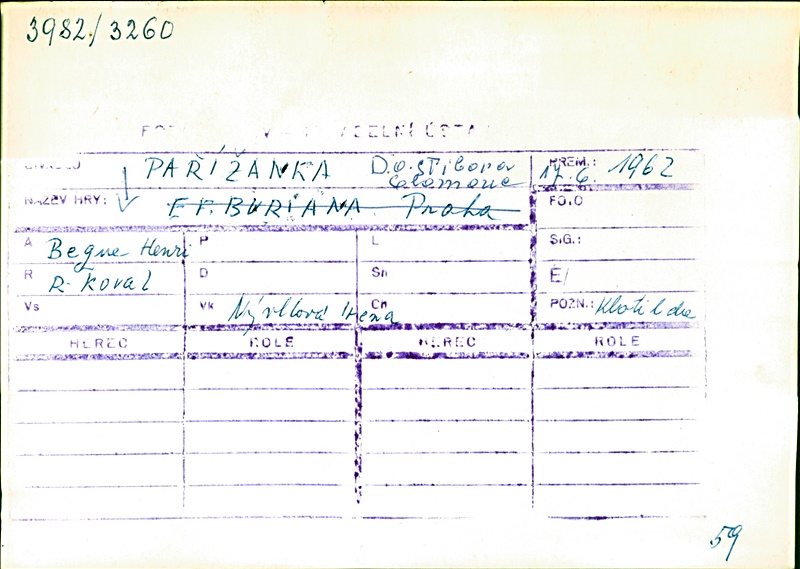 3982/3260
DIVADLO PAŘÍŽANKA D. O. Stibora PREM.: 17.6. 1962
Olomouc
NÁZEV HRY: E F. BURIANA Praha FOTO
A Begue Henri P L SIG.:
R R. Koval D Sn Č/
Vs Vk Nývltová Irena Ch POZN.: Klotilda
HEREC ROLE HEREC ROLE
59